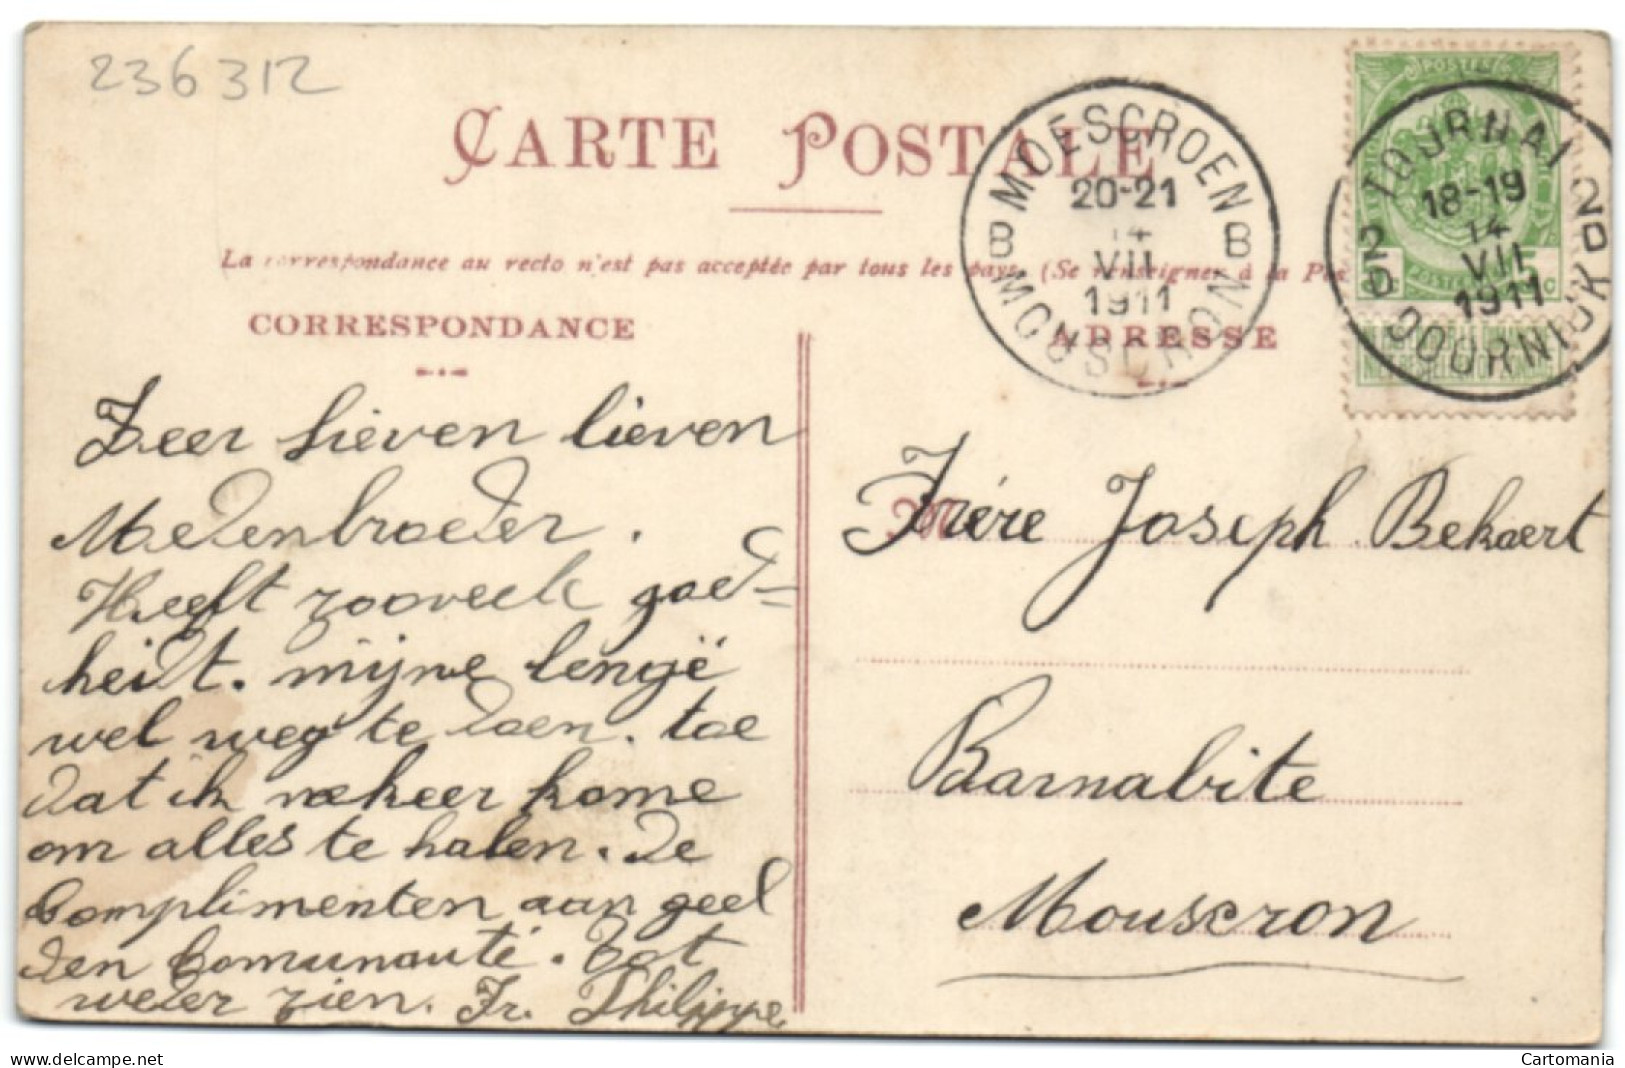 236312
CARTE POSTALE
La correspondance au recto n'est pas acceptée par tous les pays (Se renseigner à la Pos
CORRESPONDANCE
ADRESSE
MOESCROEN
B 20-21 B
14
VII
1911
MOUSCRON
TOURNAI
18-19
14
VII
1911
2D DOORNIJK 2D
POSTES
POSTERIJEN 5 C
Zeer lieven lieven
Medenbroeder.
Heeft zooveele goed=
heidt. mijne lengë
wel weg te doen. toe
dat ik nekeer kome
om alles te halen. De
Complimenten aan geel
den Comunauté. Tot
weder zien. Fr. Philippe
M Frére Joseph Bekaert
Barnabite
Mouscron
delcampe.net
Cartomania